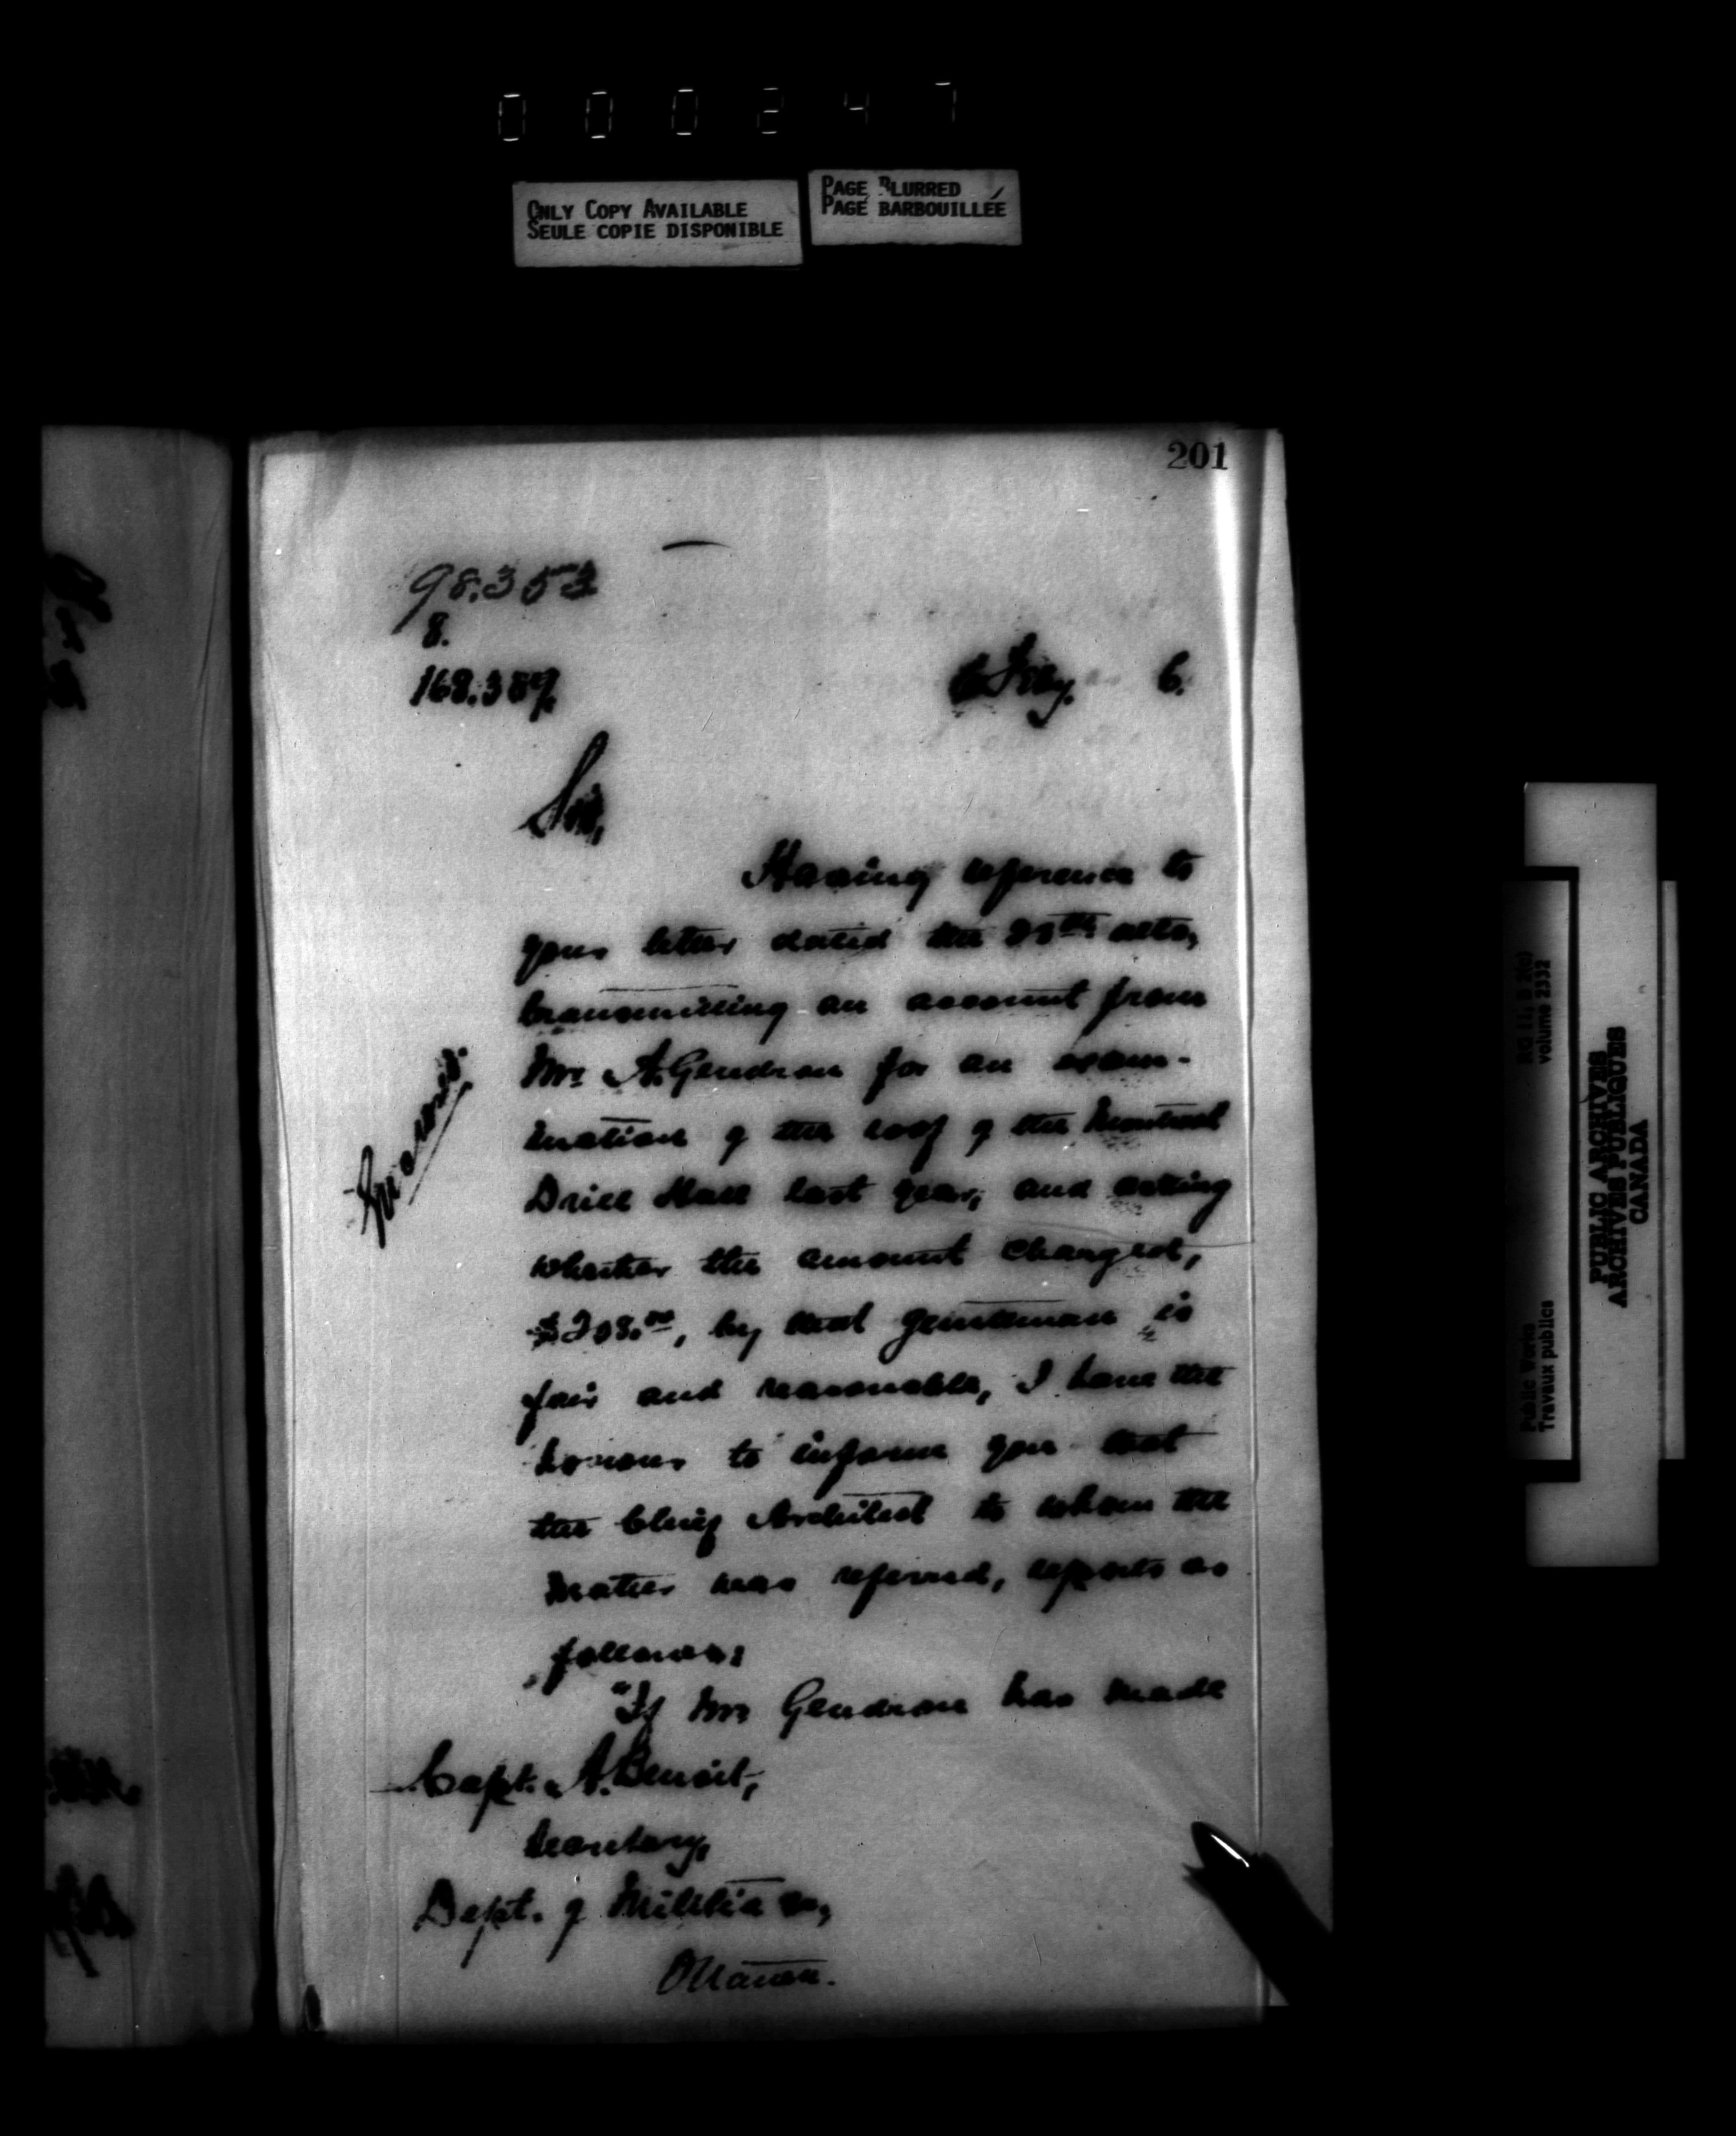 000247
ONLY COPY AVAILABLE
SEULE COPIE DISPONIBLE
PAGE BLURRED
PAGE BARBOUILLÉE
201
98.353
8.
168.389.
6 Feby. 6.
Sir,
Having reference to
your letter dated the th ulto,
transmitting an account from
Mr. A. Gendron for an exam-
ination of the roof of the Montreal
Drill Hall last year, and asking
whether the amount charged,
by that gentleman is
fair and reasonable, I have the
honour to inform you that
the Chief Architect to whom the
matter was referred, reports as
follows:
"If Mr Gendron has made
Capt. A. Benoit,
Secretary,
Dept. of Militia &c,
Ottawa.
RG 11, B 2(c)
volume 2332
Public Works
Travaux publics
PUBLIC ARCHIVES
ARCHIVES PUBLIQUES
CANADA